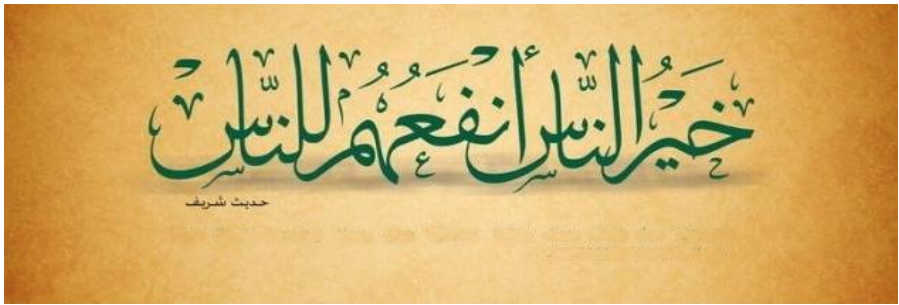 خَيْرُ النَّاسِ أَنْفَعُهُمْ لِلنَّاسِ
حديث شريف